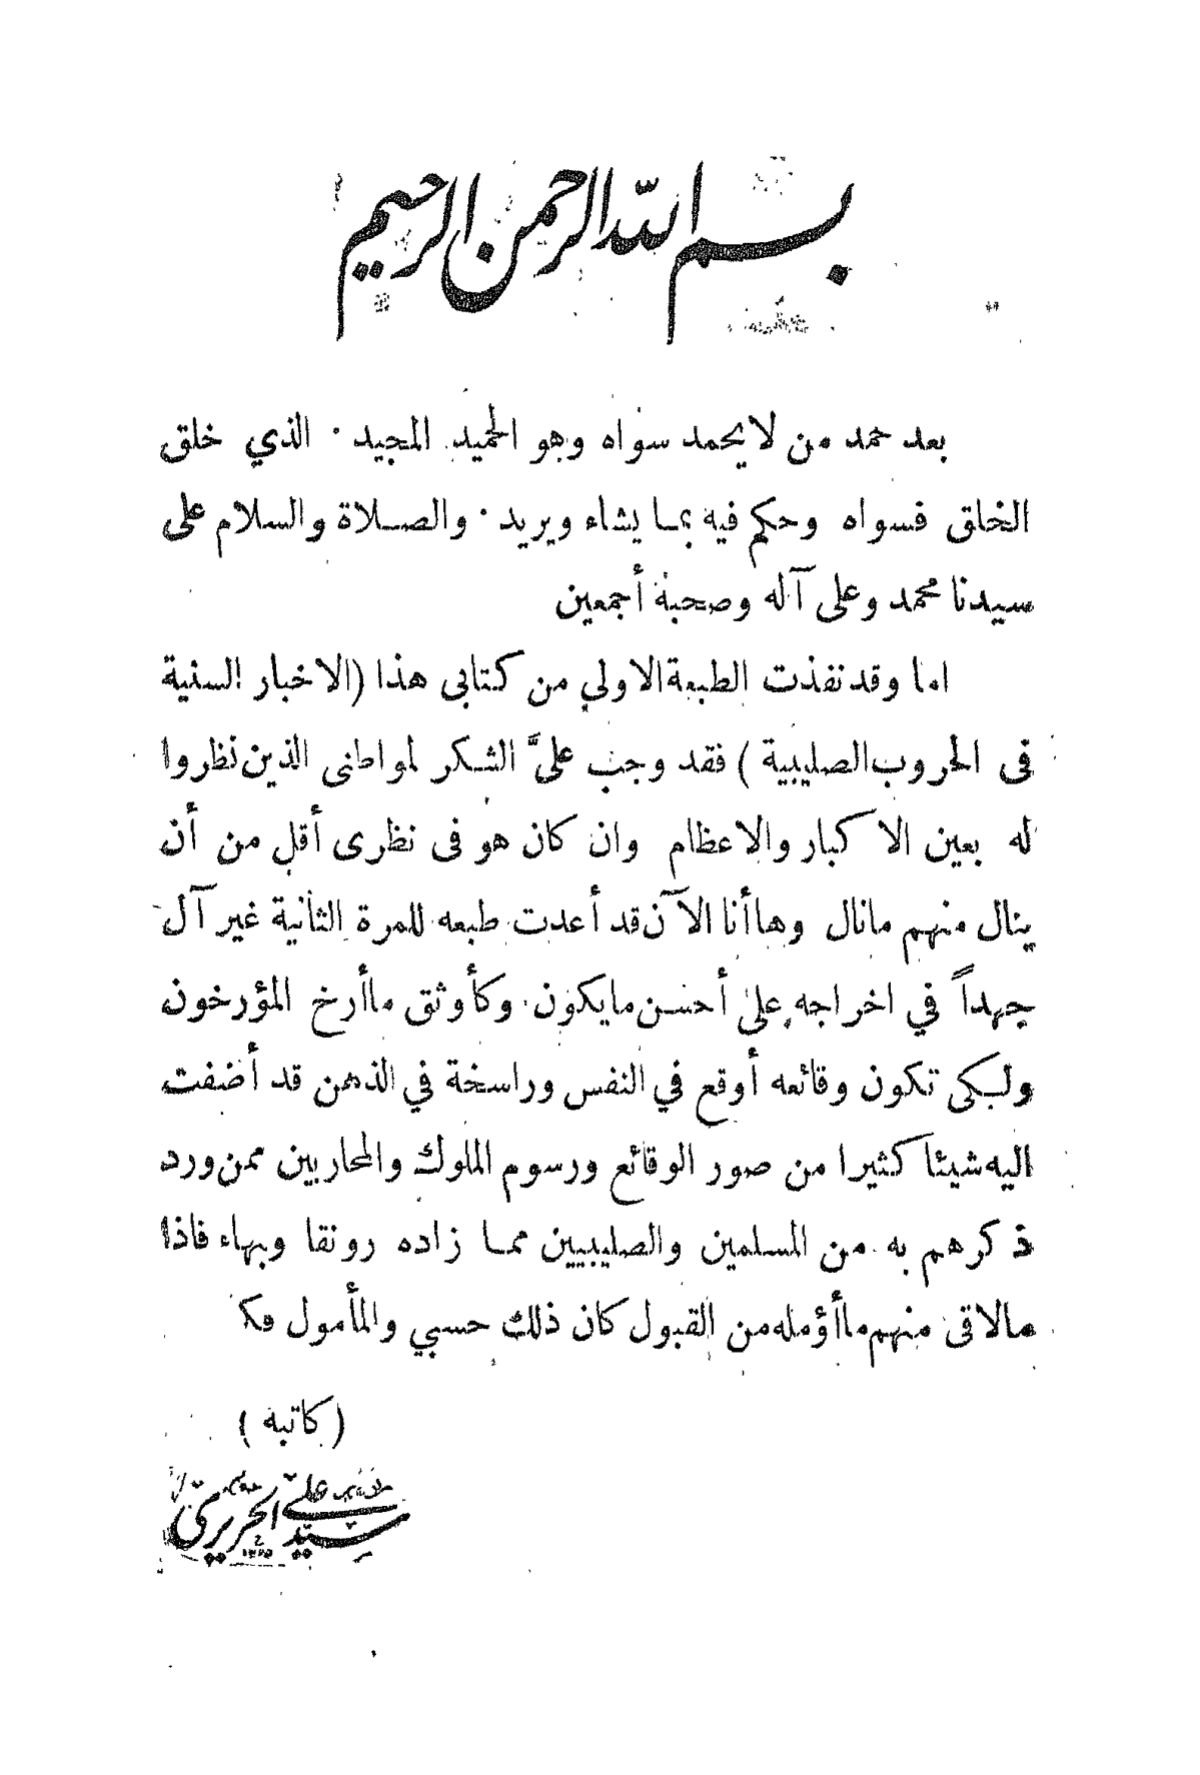 بسم الله الرحمن الرحيم
بعد حمد من لايحمد سواه وهو الحميد المجيد · الذي خلق
الخلق فسواه وحكم فيه بما يشاء ويريد · والصلاة والسلام على
سيدنا محمد وعلى آله وصحبه أجمعين
اما وقد نفذت الطبعة الاولي من كتابى هذا (الاخبار السنية
فى الحروب الصليبية ) فقد وجب علىَّ الشكر لمواطنى الذين نظروا
له بعين الاكبار والاعظام وان كان هو فى نظرى أقل من أن
ينال منهم مانال وها أنا الآن قد أعدت طبعه للمرة الثانية غير آل
جهداً في اخراجه على أحسن مايكون وكأوثق ماأرخ المؤرخون
ولكى تكون وقائعه أوقع في النفس وراسخة في الذهن قد أضفت
اليه شيئا كثيرا من صور الوقائع ورسوم الملوك والمحاربين ممن ورد
ذكرهم به من المسلمين والصليبيين مما زاده رونقا وبهاء فاذا
مالاقى منهم ماأؤمله من القبول كان ذلك حسبي والمأمول
( كاتبه )
سيد علي الحريري